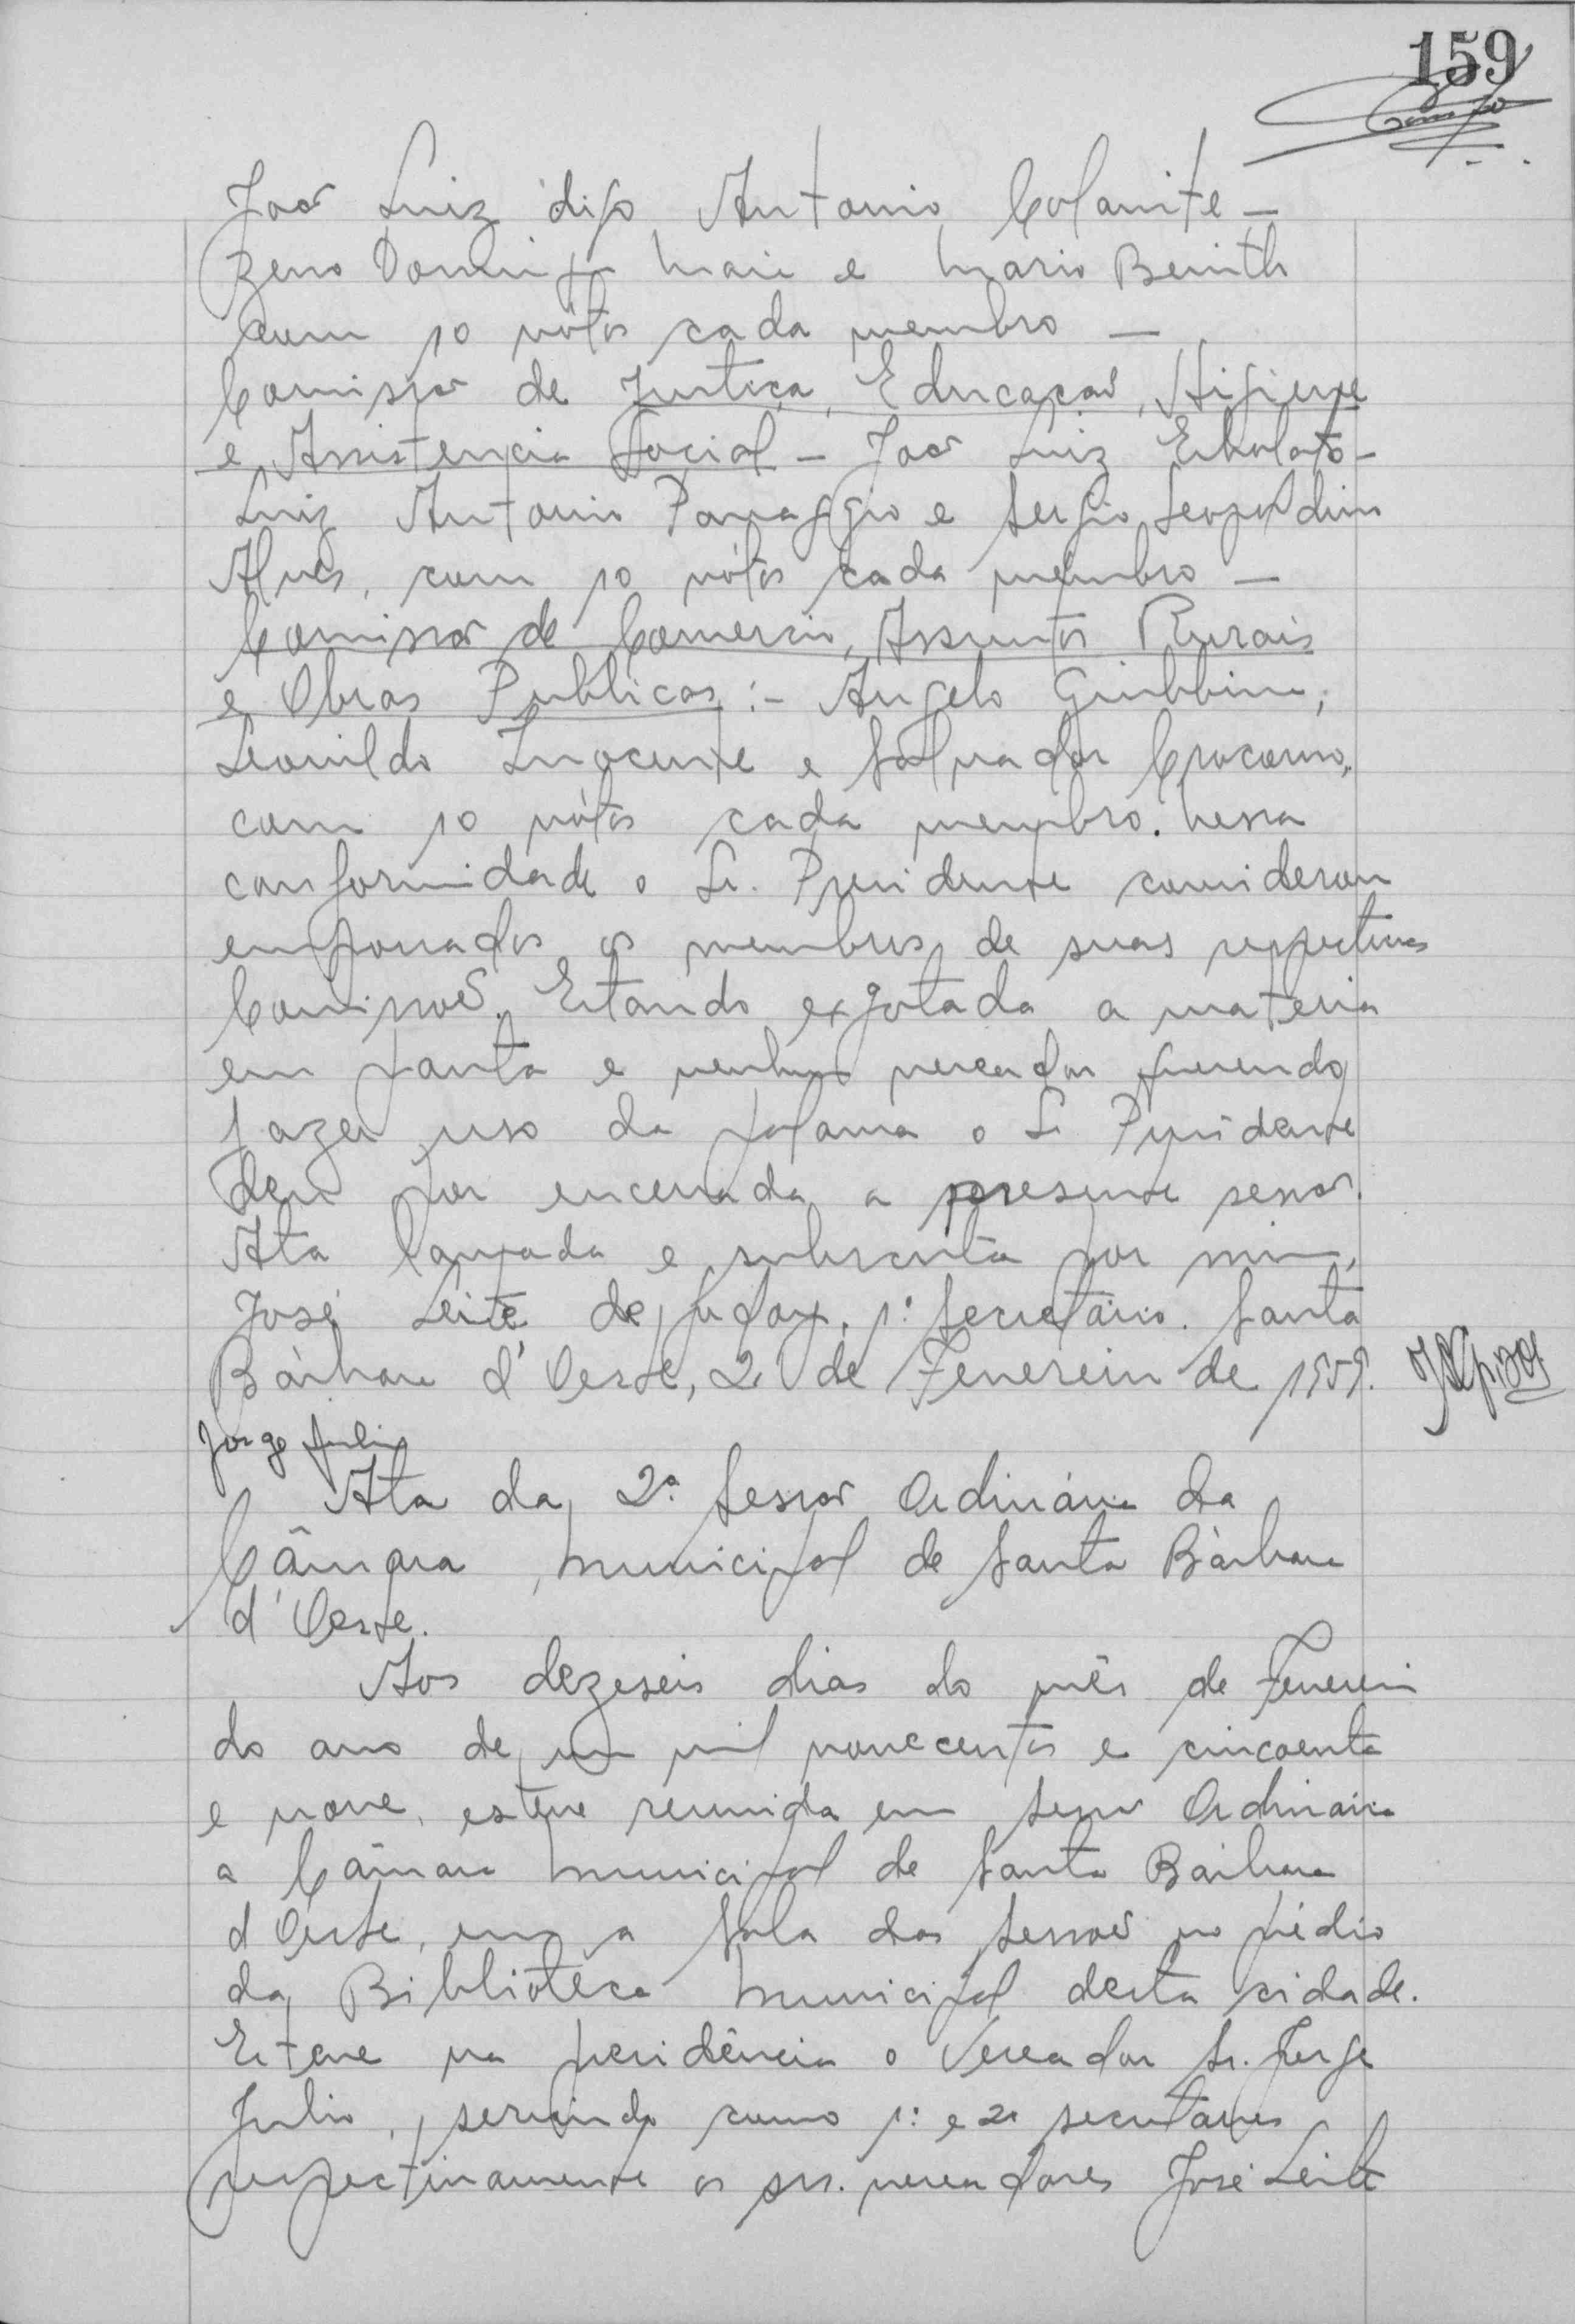 159
João Luiz digo Antonio Colamite —
Zeno Domingos Maia e Mario Beinith
com 10 vótos cada membro —
Comissão de Justiça, Educação, Higiene
e Assistencia Social — João Luiz Erbolato —
Luiz Antonio Panaggio e Sergio Leopoldino
Alves, com 10 vótos cada membro —
Comissão de Comercio, Assuntos Rurais
e Obras Publicas :- Angelo Giubbina,
Leonildo Inocente e Salvador Crocomo,
com 10 vótos cada membro. Nessa
conformidade o Sr. Presidente considerou
empossados os membros de suas respectivas
Comissões. Estando exgotada a materia
em pauta e nenhum vereador querendo
fazer uso da palavra o Sr Presidente
deu por encerrada a presente sessão.
Ata lavrada e subscrita por mim,
José Leite de, 1º Secretário. Santa
Bárbara d'Oeste, 2 de Fevereiro de 1959.
Jorge Julio
Ata da 2ª Sessão Ordinária da
Câmara Municipal de Santa Bárbara
d'Oeste.
Aos dezeseis dias do mês de Fevereiro
do ano de um mil novecentos e cincoenta
e nove, esteve reunida em Sessão Ordinaria
a Câmara Municipal de Santa Bárbara
d'Oeste, em a Sala das Sessões no prédio
da Biblioteca Municipal desta cidade.
Esteve na presidência o Vereador Sr. Jorge
Julio, servindo como 1º e 2º secretarios
respectivamente os srs. vereadores José Leite